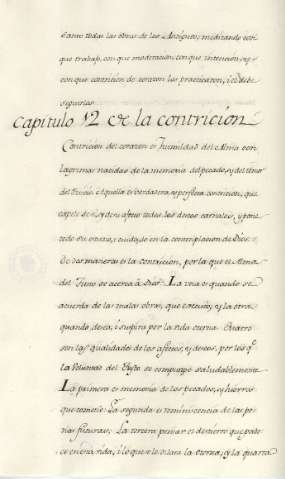 tanto todas las obras de los Antiguos; meditando con
que trabajo, con que moderacion, con que intencion, y
con que contricion de corazon las practicaron, i se debe
seguirlas
Capitulo 12 de la contrición
Contricion del corazon es humildad del Alma con
lagrimas nacidas de la memoria del pecado, y del temor
del Juicio. Aquella es verdadera, y perfecta contricion, que
de si los afectos todos los deseos carnales, y pone
todo su en la contemplacion de Dios.
De dos maneras es la contricion, por la que el Alma
del Justo se acerca à Dios. La una es quando se
acuerda de las malas obras, que executó; y la otra
quando desea, i suspira por la vida eterna. Quatro
son las qualidades de los afectos, y deseos, por los q.
la voluntad del Justo se compunge saludablemente.
La primera es memoria de los pecados, y hierros
que cometió. La segunda es reminiscencia de las pe-
nas futuras. La tercera pensar el destierro que pade-
ce en esta vida, i lo que le dilata la eterna, y la quarta